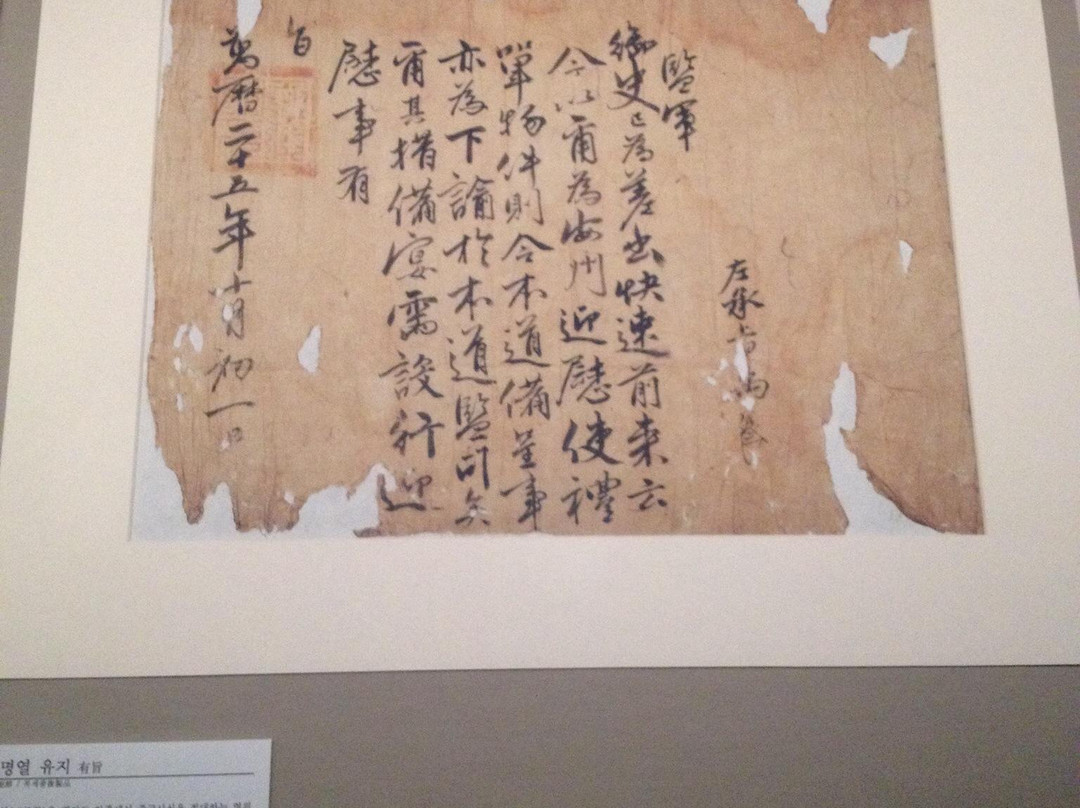 左承旨
監軍
御史已為差出快速前來云
今以甭為海州迎慰使禮
單物件則令本道備呈事
亦為下諭於本道監司矣
甭其措備宴需設行迎
慰事有
旨
萬曆二十五年十月初一日
명열 유지 有旨